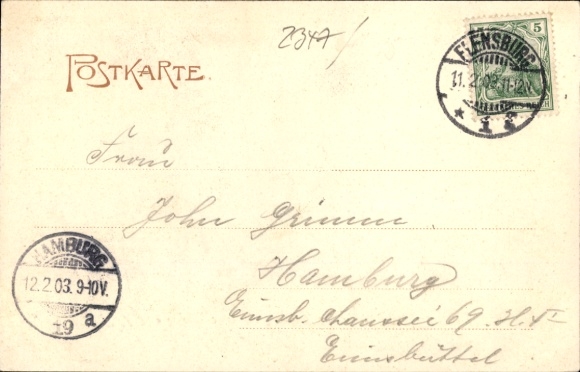 2347/
POSTKARTE.
5
FLENSBURG
11.2.03. 11-12V.
* 1 *
Frau
John Grimm.
Hamburg
Eimsb. Chaussee 69. H.
Eimsbüttel.
HAMBURG
12.2.03. 9-10V.
19 a